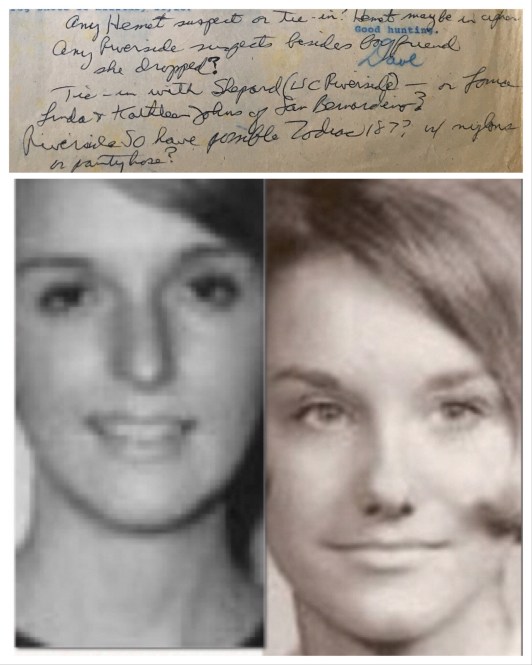 Any Hemet suspect or tie-in? Hemet may be in cipher
Good hunting.
Any Riverside suspects besides boyfriend
Dave
she dropped?
Tie-in with Shepard (UC Riverside) — or
Linda & Kathleen Johns of San Bernardino?
Riverside SO have possible Zodiac 18?? w/ nylons
or pantyhose?